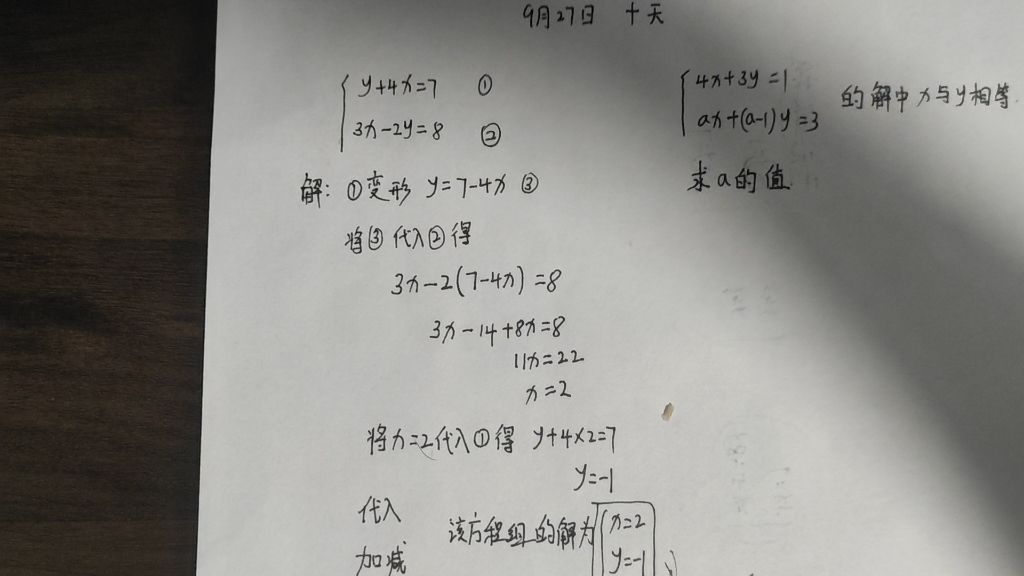 9月27日 十天
y+4x=7 ①
3x-2y=8 ②
解: ①变形 y=7-4x ③
将③代入②得
3x-2(7-4x)=8
3x-14+8x=8
11x=22
x=2
将x=2代入①得 y+4×2=7
y=-1
代入
加减
该方程组的解为 x=2
y=-1
4x+3y=1
ax+(a-1)y=3 的解中x与y相等.
求a的值